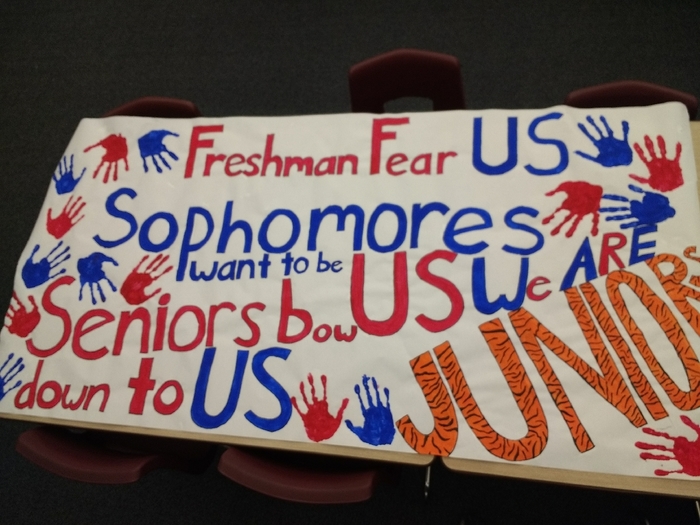 Freshman Fear US
Sophomores
want to be US We ARE
Seniors bow
down to US JUNIORS